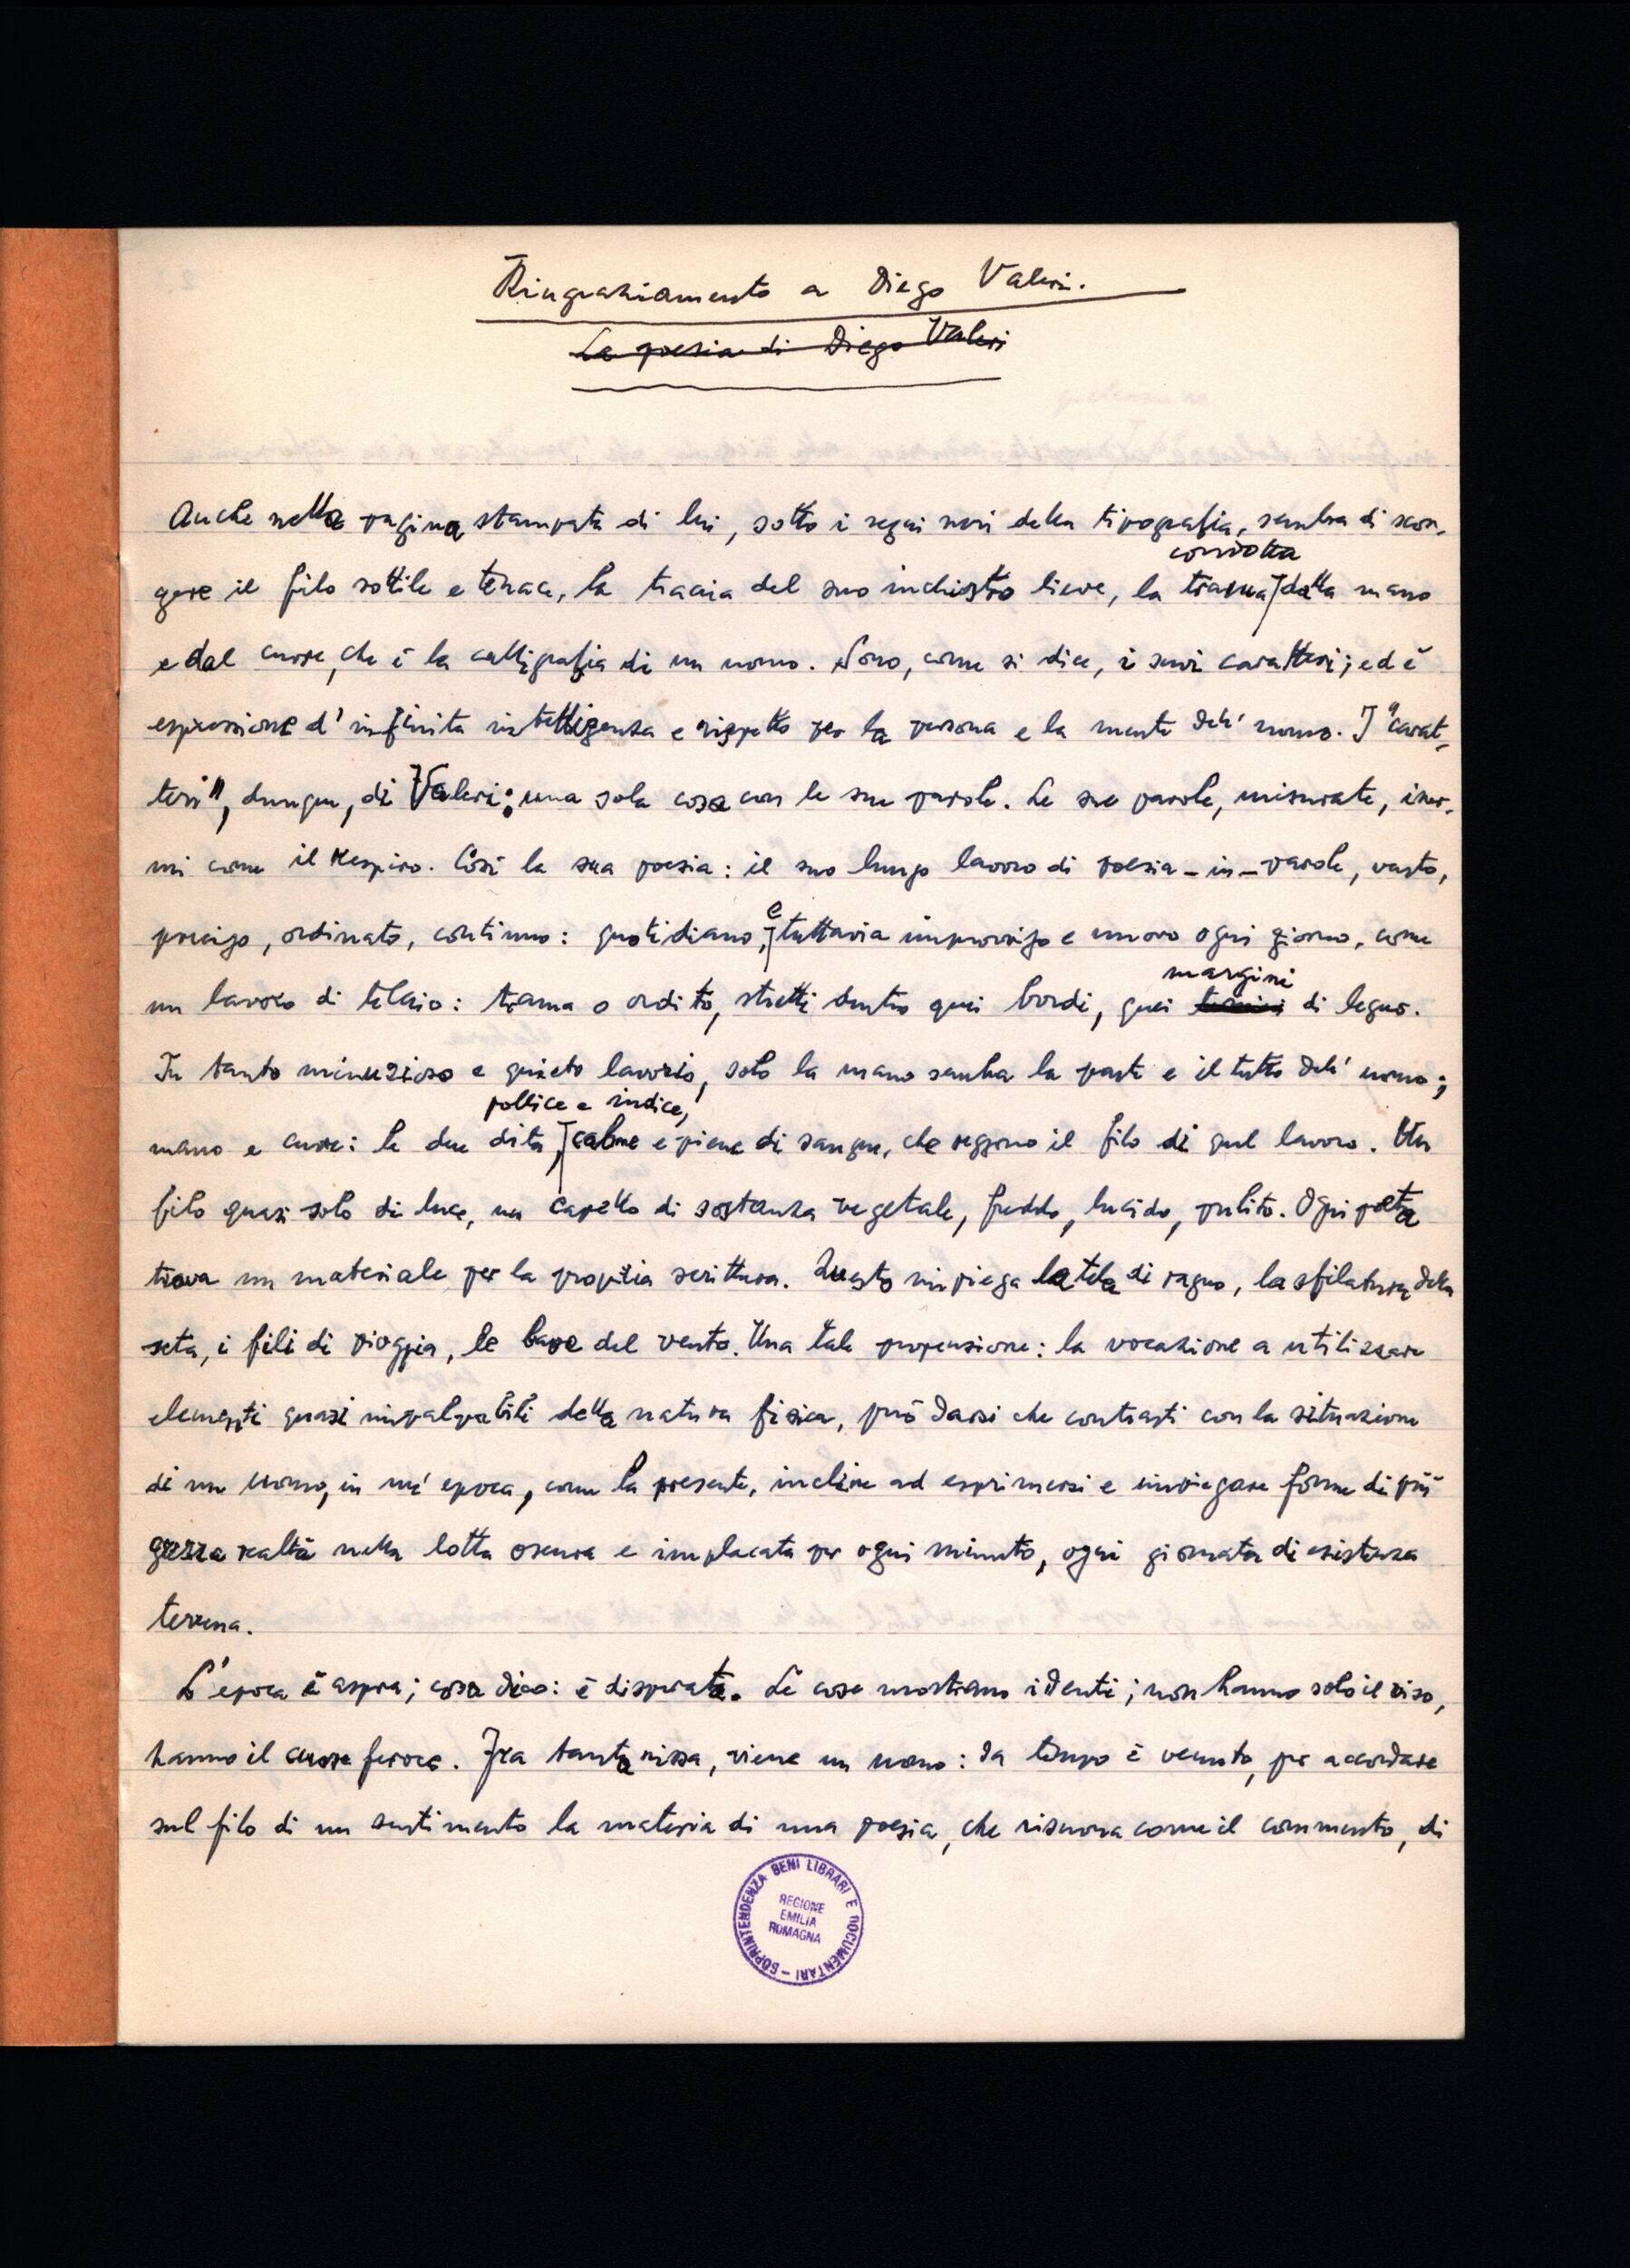 Ringraziamento a Diego Valeri.
La poesia di Diego Valeri
Anche nella pagina stampata di lui, sotto i segni neri della tipografia, sembra di scor-
condotta
gere il filo sottile e tenace, la traccia del suo inchiostro lieve, la trama dalla mano
e dal cuore, che è la calligrafia di un uomo. Sono, come si dice, i suoi caratteri; ed è
espressione d'infinita intelligenza e rispetto per la persona e la mente dell'uomo. I "carat-
teri", dunque, di Valeri: una sola cosa con le sue parole. Le sue parole, misurate, iner-
mi come il respiro. Così la sua poesia: il suo lungo lavoro di poesia-in-parole, vasto,
e
preciso, ordinato, continuo: quotidiano, tuttavia improvviso e nuovo ogni giorno, come
margini
un lavoro di telaio: trama o ordito, stretti dentro quei bordi, quei di legno.
In tanto minuzioso e quieto lavorio, solo la mano sembra la parte e il tutto dell'uomo;
pollice e indice,
mano e cuore: le due dita, calme e piene di sangue, che reggono il filo di quel lavoro. Un
filo quasi solo di luce, un capello di sostanza vegetale, freddo, lucido, pulito. Ogni poeta
trova un materiale per la propria scrittura. Questo impiega la tela di ragno, la sfilatura della
seta, i fili di pioggia, le bave del vento. Una tale propensione: la vocazione a utilizzare
elementi quasi impalpabili della natura fisica, può darsi che contrasti con la situazione
di un uomo, in un'epoca, come la presente, incline ad esprimersi e impiegare forme di più
grezza realtà nella lotta oscura e implacata per ogni minuto, ogni giornata di esistenza
terrena.
L'epoca è aspra; cosa dico: è disperata. Le cose mostrano i denti; non hanno solo il viso,
hanno il cuore feroce. Fra tanta rissa, viene un uomo: da tempo è venuto, per accordare
sul filo di un sentimento la materia di una poesia, che risuona come il commento, di
SOPRINTENDENZA BENI LIBRARI E DOCUMENTARI -
REGIONE
EMILIA
ROMAGNA